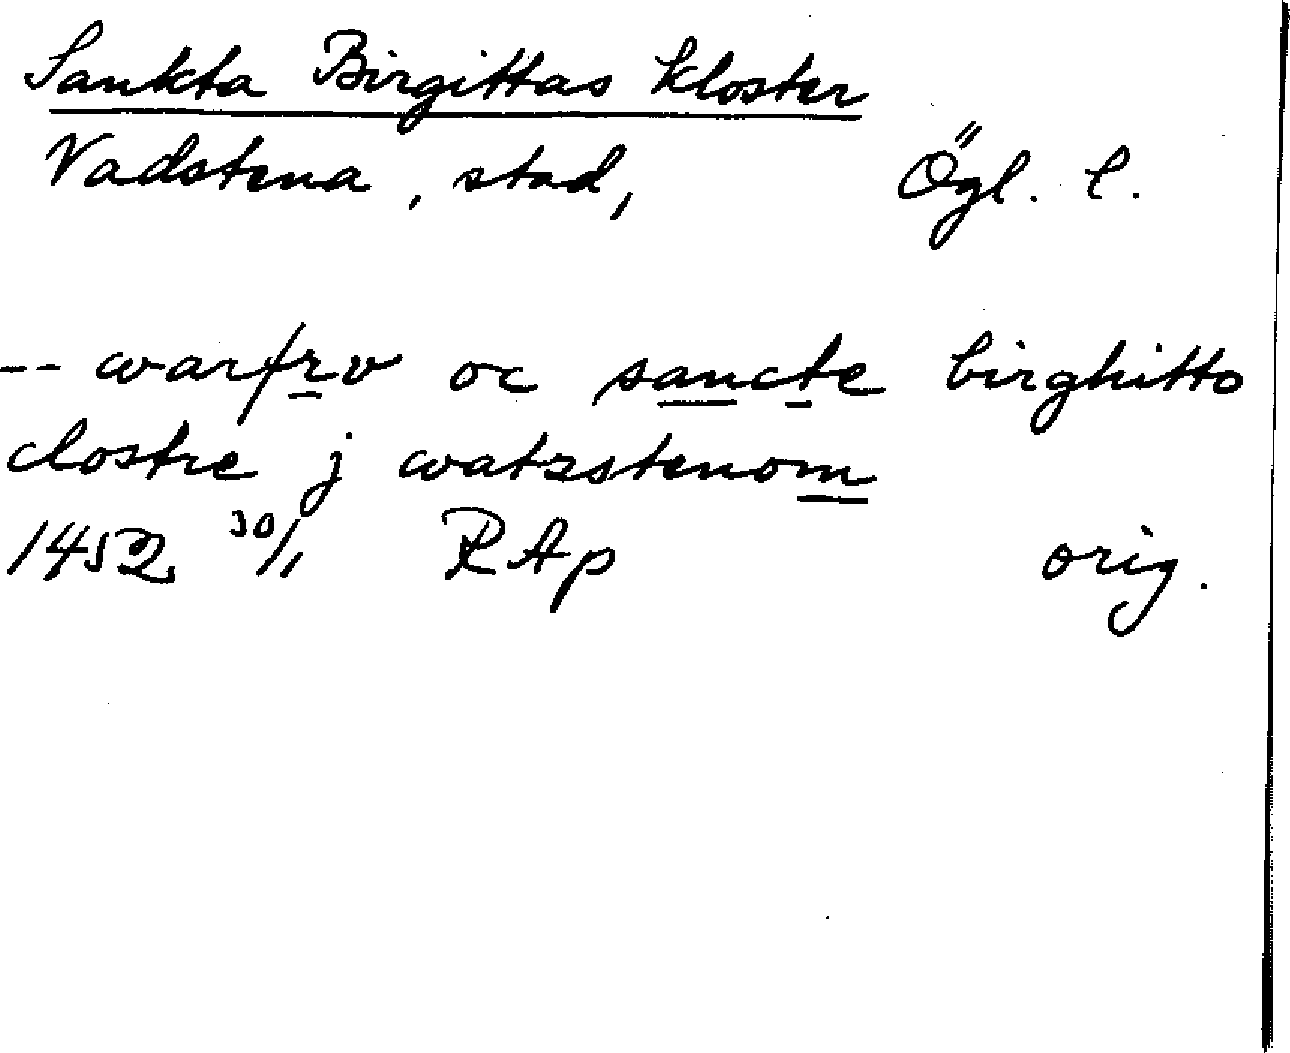 Sankta Birgittas kloster
Vadstena, stad, Ögl. l.
-- warfrv oc sancte birghitto
clostre j watzstenom
1452 30/1 RAp orig.